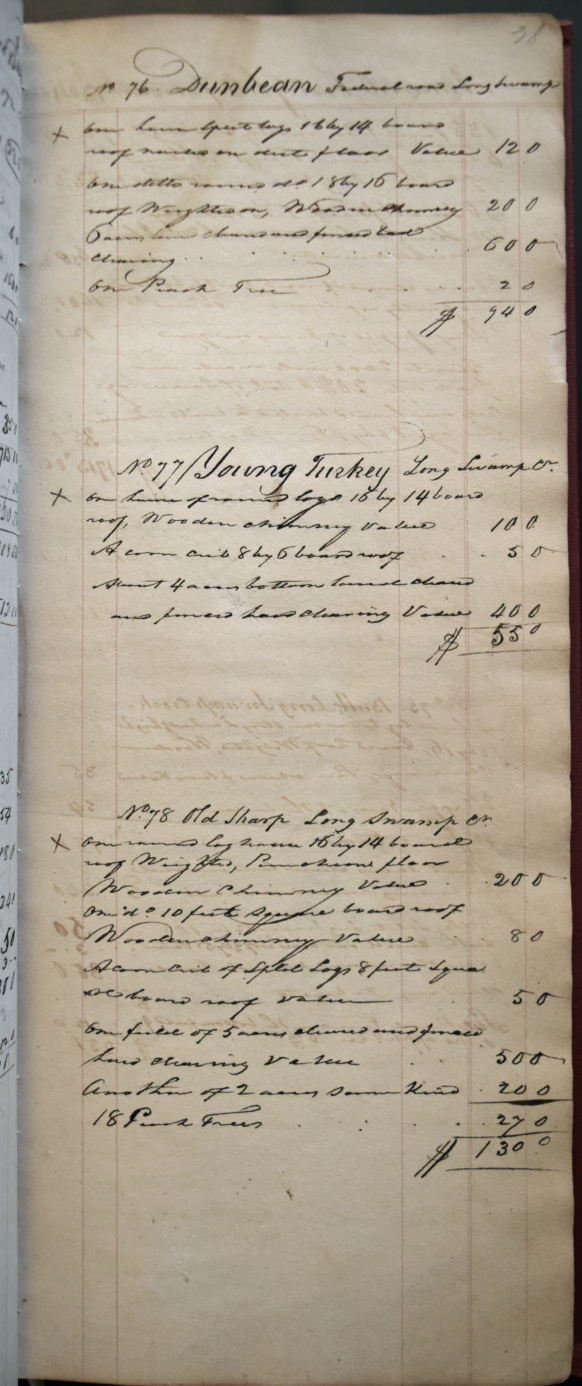 38
No 76. Dunbean Federal road Long Swamp
X One house Split logs 16 by 14 board
roof nailed on dirt floor Value 120
One ditto round do 18 by 16 board
roof Weighted on, Wooden Chimney 200
6 acres land cleared and fenced bad
clearing . . . . . . 600
One Peach Tree . . 20
$ 940
No 77/ Young Turkey Long Swamp Cr.
X One house of round logs 16 by 14 board
roof, Wooden chimney Value 100
A corn crib 8 by 6 board roof . . 50
About 4 acres bottom land cleared
and fenced hard clearing Value 400
$ 550
No 78 Old Sharp Long Swamp Cr.
X One round log house 16 by 14 board
roof Weighted, Puncheon floor
Wooden Chimney Value . 200
One do 10 feet square board roof
Wooden chimney Value 80
A corn crib of Split Logs 8 feet Squa
re board roof Value 50
One field of 5 acres cleared and fenced
hard clearing Value . 500
Another of 2 acres same kind . 200
18 Peach Trees . . . . 270
$ 1300